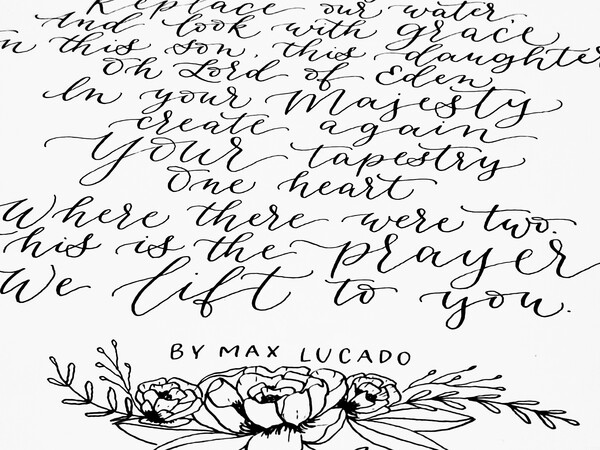 Replace our water,
And look with grace
on this son, this daughter
Oh Lord of Eden
In your Majesty
create again
Your tapestry
One heart
Where there were two.
This is the prayer
We lift to you.
BY MAX LUCADO